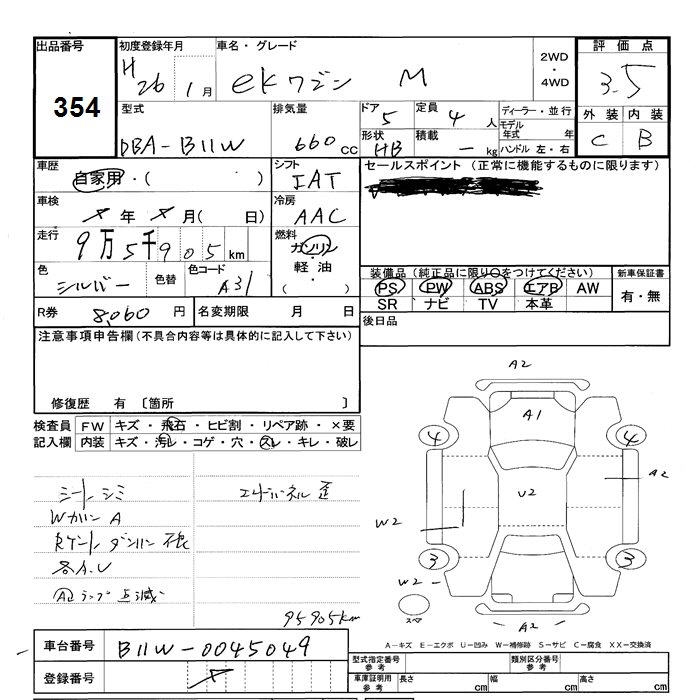 出品番号 354
初度登録年月 H26 1月
車名・グレード ekワゴン M
2WD・4WD
評価点 3.5
外装 C 内装 B
型式 DBA-B11W
排気量 660cc
ドア 5 定員 4人
形状 HB 積載 - kg
ディーラー・並行
モデル年式 年
ハンドル 左・右
車歴 自家用・( )
シフト IAT
セールスポイント (正常に機能するものに限ります)
車検 X年X月( 日)
冷房 AAC
走行 9万5千905km
燃料 ガソリン・軽油・( )
色 シルバー 色替 色コード A31
装備品(純正品に限り○をつけてください)
新車保証書 有・無
PS PW ABS エアB AW
SR ナビ TV 本革
R券 8,060円 名変期限 月 日
後日品
注意事項申告欄(不具合内容等は具体的に記入して下さい)
修復歴 有 〔箇所 〕
検査員記入欄
FW キズ・飛石・ヒビ割・リペア跡・×要
内装 キズ・汚レ・コゲ・穴・スレ・キレ・破レ
シートシミ
エンドパネル歪
Wカリン A
各A.U
95905km
A2
A1
4 4
A2
U2
W2
3 3
W2
スペア
A2
A-キズ E-エクボ U-凹み W-補修跡 S-サビ C-腐食 XX-交換済
車台番号 B11W-0045049
登録番号 X
型式指定番号 参考 類別区分番号 参考
車庫証明用 参考 長さ cm 幅 cm 高さ cm